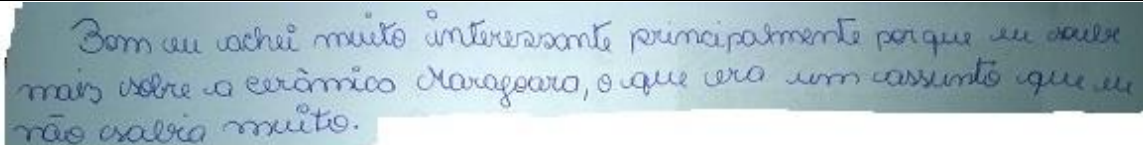 Bom eu achei muito interessante principalmente porque eu soube
mais sobre a cerâmica Maragoara, o que era um assunto que eu
não sabia muito.